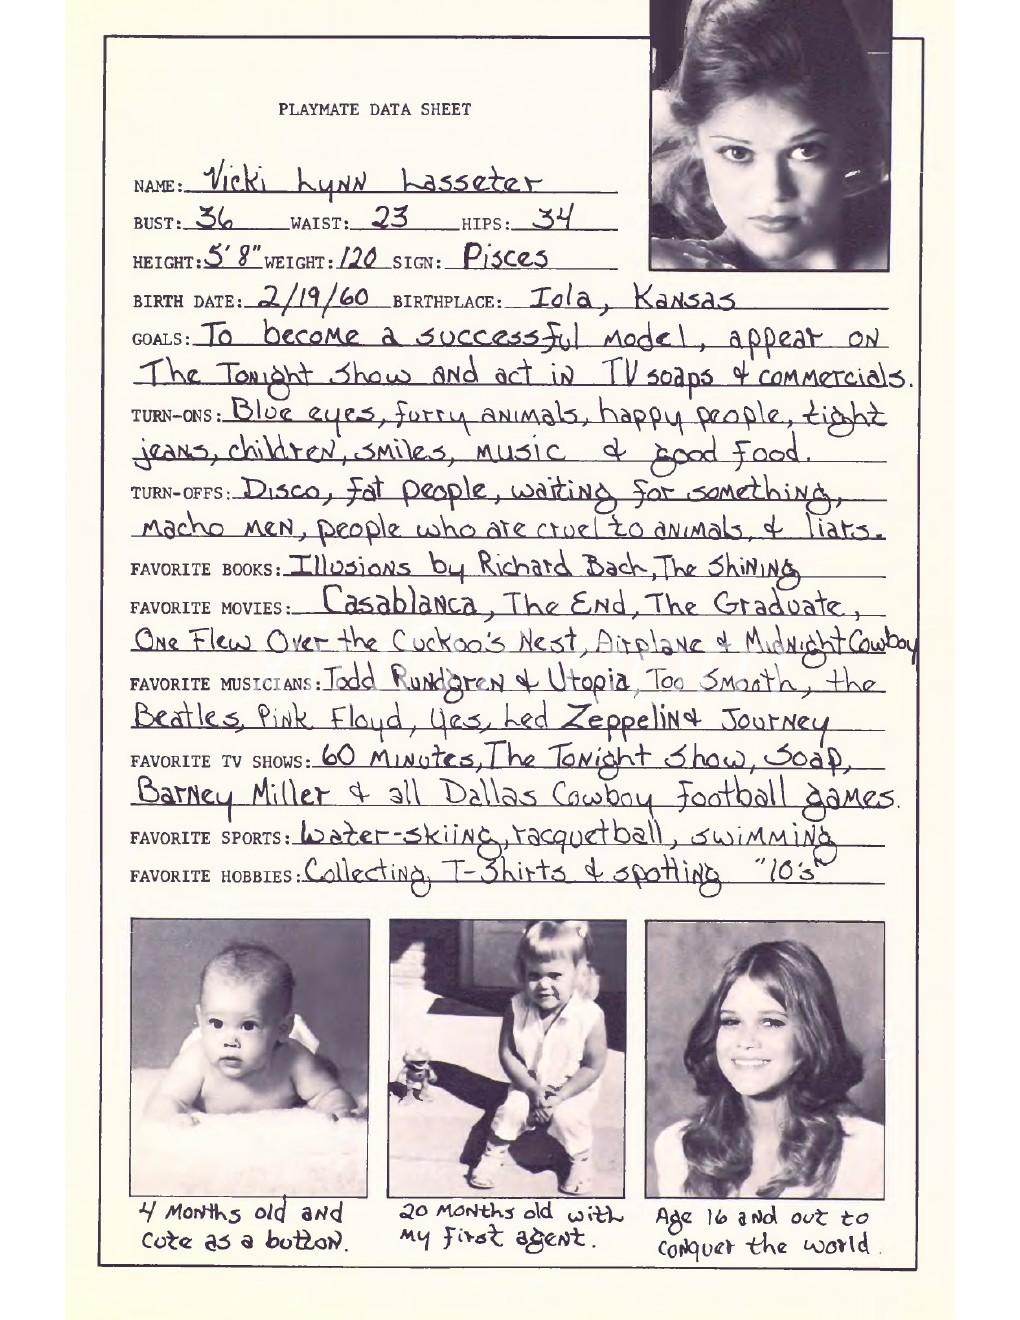 PLAYMATE DATA SHEET
NAME: Vicki Lynn Lasseter
BUST: 36 WAIST: 23 HIPS: 34
HEIGHT: 5' 8" WEIGHT: 120 SIGN: Pisces
BIRTH DATE: 2/19/60 BIRTHPLACE: Iola, Kansas
GOALS: To become a successful model, appear on
The Tonight Show and act in TV soaps & commercials.
TURN-ONS: Blue eyes, furry animals, happy people, tight
jeans, children, smiles, music & good food.
TURN-OFFS: Disco, fat people, waiting for something,
macho men, people who are cruel to animals, & liars.
FAVORITE BOOKS: Illusions by Richard Bach, The Shining
FAVORITE MOVIES: Casablanca, The End, The Graduate,
One Flew Over the Cuckoo's Nest, Airplane & Midnight Cowboy
FAVORITE MUSICIANS: Todd Rundgren & Utopia, Too Smooth, the
Beatles, Pink Floyd, Yes, Led Zeppelin & Journey
FAVORITE TV SHOWS: 60 Minutes, The Tonight Show, Soap,
Barney Miller & all Dallas Cowboy football games.
FAVORITE SPORTS: Water-skiing, racquetball, swimming
FAVORITE HOBBIES: Collecting T-Shirts & spotting "10's"
4 months old and
cute as a button.
20 months old with
my first agent.
Age 16 and out to
conquer the world.